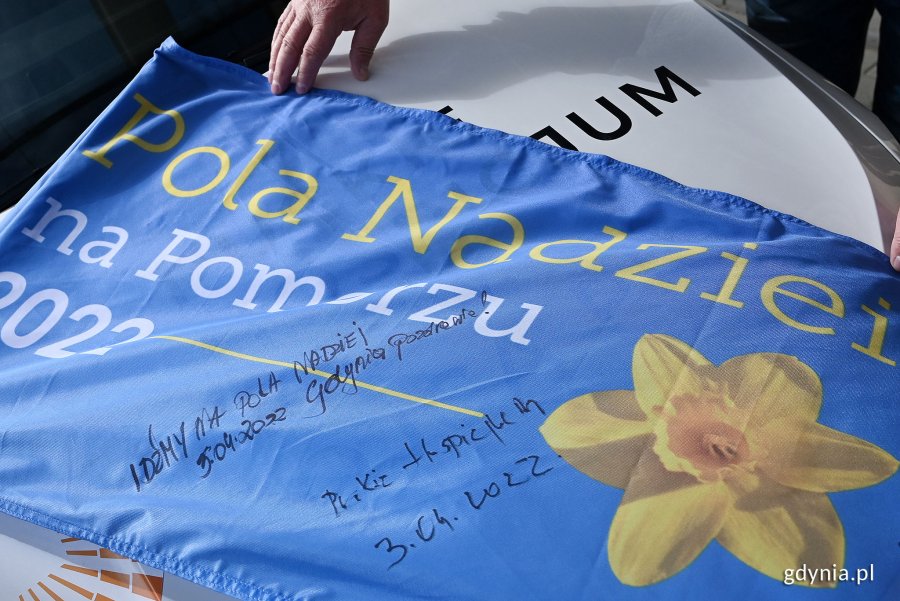 Pola Nadziei
na Pomorzu
2022
IDŹMY NA POLA NADZIEI
3.04.2022 Gdynia pozdrawia!
Puckie Hospicjum
3.04.2022.
UM
gdynia.pl